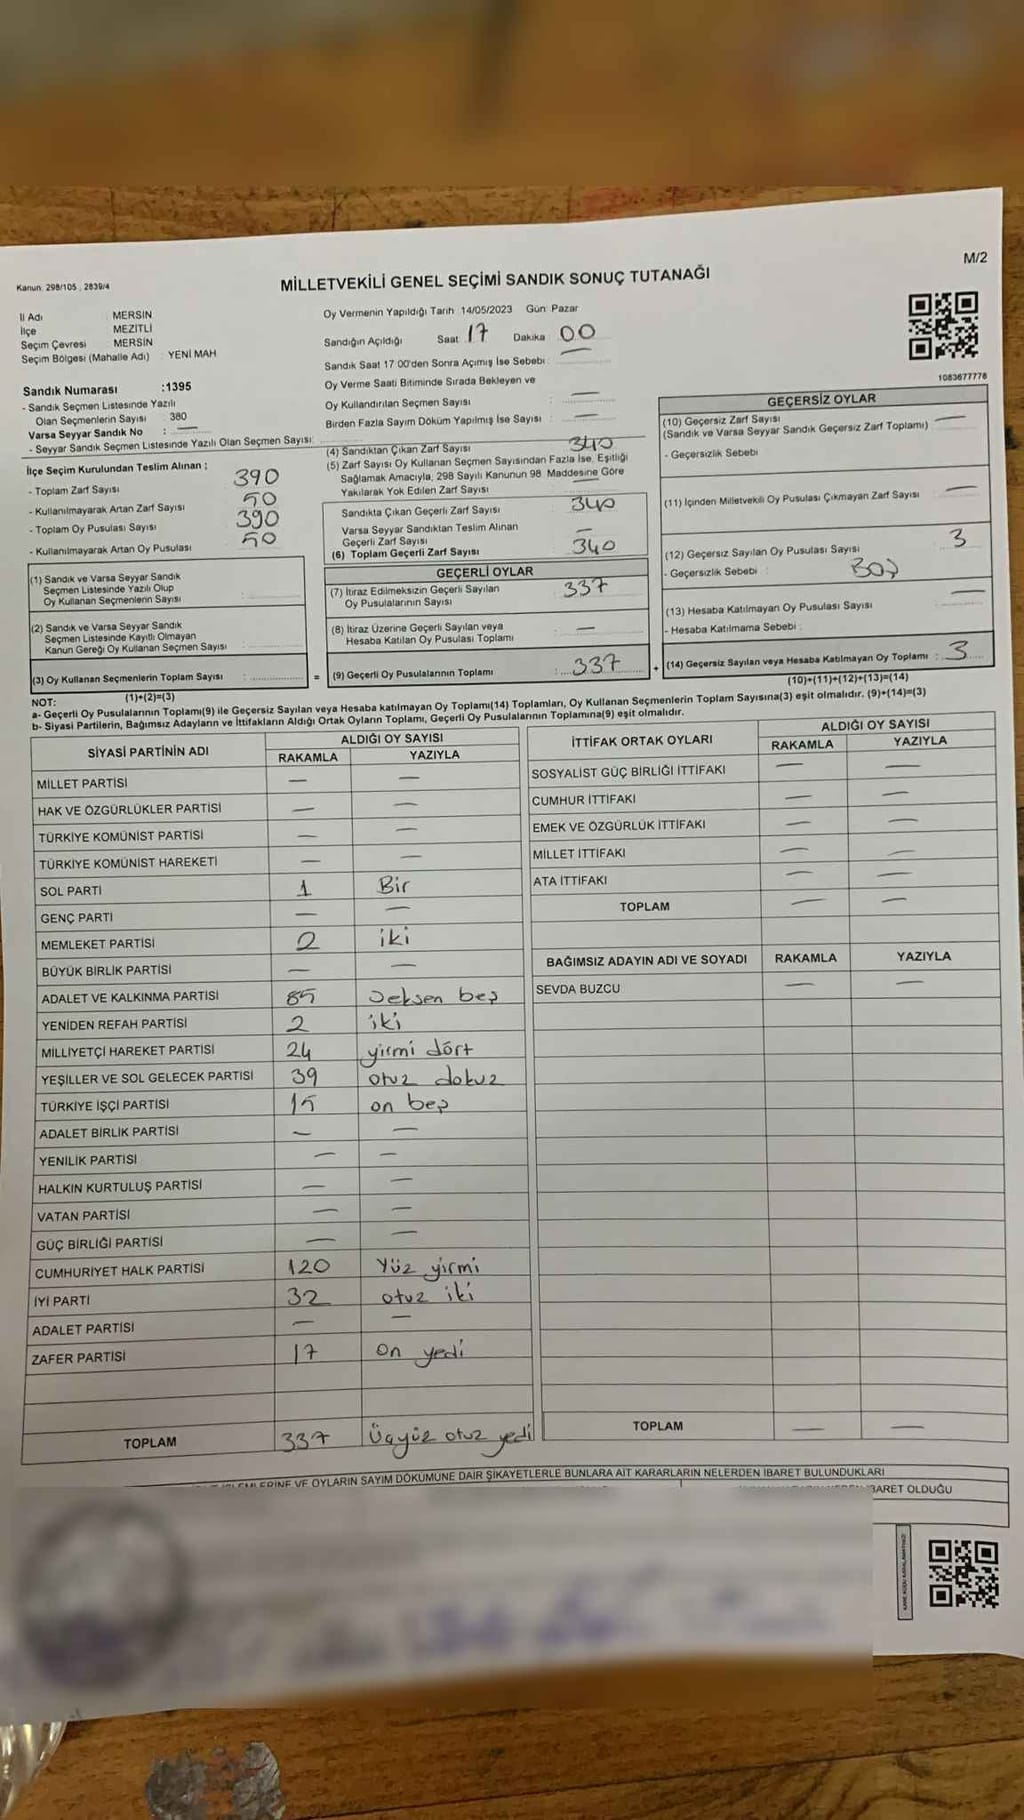 M/2
Kanun: 298/105 , 2839/4
MİLLETVEKİLİ GENEL SEÇİMİ SANDIK SONUÇ TUTANAĞI
İl Adı : MERSİN
İlçe MEZİTLİ
Seçim Çevresi : MERSİN
Seçim Bölgesi (Mahalle Adı) YENİ MAH
Sandık Numarası :1395
- Sandık Seçmen Listesinde Yazılı
Olan Seçmenlerin Sayısı 380
Varsa Seyyar Sandık No : —
- Seyyar Sandık Seçmen Listesinde Yazılı Olan Seçmen Sayısı:
Oy Vermenin Yapıldığı Tarih :14/05/2023 Gün: Pazar
Sandığın Açıldığı Saat 17 Dakika 00
Sandık Saat 17:00'den Sonra Açımış İse Sebebi : —
Oy Verme Saati Bitiminde Sırada Bekleyen ve
Oy Kullandırılan Seçmen Sayısı : —
Birden Fazla Sayım Döküm Yapılmış İse Sayısı : —
1083677778
İlçe Seçim Kurulundan Teslim Alınan ;
- Toplam Zarf Sayısı 390
- Kullanılmayarak Artan Zarf Sayısı 50
- Toplam Oy Pusulası Sayısı 390
- Kullanılmayarak Artan Oy Pusulası 50
(1) Sandık ve Varsa Seyyar Sandık
Seçmen Listesinde Yazılı Olup
Oy Kullanan Seçmenlerin Sayısı
(2) Sandık ve Varsa Seyyar Sandık
Seçmen Listesinde Kayıtlı Olmayan
Kanun Gereği Oy Kullanan Seçmen Sayısı
(3) Oy Kullanan Seçmenlerin Toplam Sayısı :
(1)+(2)=(3)
(4) Sandıktan Çıkan Zarf Sayısı 340
(5) Zarf Sayısı Oy Kullanan Seçmen Sayısından Fazla İse, Eşitliği
Sağlamak Amacıyla; 298 Sayılı Kanunun 98. Maddesine Göre
Yakılarak Yok Edilen Zarf Sayısı —
Sandıkta Çıkan Geçerli Zarf Sayısı 340
Varsa Seyyar Sandıktan Teslim Alınan
Geçerli Zarf Sayısı —
(6) Toplam Geçerli Zarf Sayısı 340
GEÇERLİ OYLAR
(7) İtiraz Edilmeksizin Geçerli Sayılan
Oy Pusulalarının Sayısı 337
(8) İtiraz Üzerine Geçerli Sayılan veya
Hesaba Katılan Oy Pusulası Toplamı —
= (9) Geçerli Oy Pusulalarının Toplamı : 337
GEÇERSİZ OYLAR
(10) Geçersiz Zarf Sayısı —
(Sandık ve Varsa Seyyar Sandık Geçersiz Zarf Toplamı)
- Geçersizlik Sebebi
(11) İçinden Milletvekili Oy Pusulası Çıkmayan Zarf Sayısı —
(12) Geçersiz Sayılan Oy Pusulası Sayısı 3
- Geçersizlik Sebebi : Boş
(13) Hesaba Katılmayan Oy Pusulası Sayısı —
- Hesaba Katılmama Sebebi :
+ (14) Geçersiz Sayılan veya Hesaba Katılmayan Oy Toplamı : 3
(10)+(11)+(12)+(13)=(14)
NOT:
a- Geçerli Oy Pusulalarının Toplamı(9) ile Geçersiz Sayılan veya Hesaba katılmayan Oy Toplamı(14) Toplamları, Oy Kullanan Seçmenlerin Toplam Sayısına(3) eşit olmalıdır. (9)+(14)=(3)
b- Siyasi Partilerin, Bağımsız Adayların ve İttifakların Aldığı Ortak Oyların Toplamı, Geçerli Oy Pusulalarının Toplamına(9) eşit olmalıdır.
SİYASİ PARTİNİN ADI ALDIĞI OY SAYISI
RAKAMLA YAZIYLA
MİLLET PARTİSİ — —
HAK VE ÖZGÜRLÜKLER PARTİSİ — —
TÜRKİYE KOMÜNİST PARTİSİ — —
TÜRKİYE KOMÜNİST HAREKETİ — —
SOL PARTİ 1 Bir
GENÇ PARTİ — —
MEMLEKET PARTİSİ 2 iki
BÜYÜK BİRLİK PARTİSİ — —
ADALET VE KALKINMA PARTİSİ 85 Seksen beş
YENİDEN REFAH PARTİSİ 2 iki
MİLLİYETÇİ HAREKET PARTİSİ 24 yirmi dört
YEŞİLLER VE SOL GELECEK PARTİSİ 39 otuz dokuz
TÜRKİYE İŞÇİ PARTİSİ 15 on beş
ADALET BİRLİK PARTİSİ — —
YENİLİK PARTİSİ — —
HALKIN KURTULUŞ PARTİSİ — —
VATAN PARTİSİ — —
GÜÇ BİRLİĞİ PARTİSİ — —
CUMHURİYET HALK PARTİSİ 120 Yüz yirmi
İYİ PARTİ 32 otuz iki
ADALET PARTİSİ — —
ZAFER PARTİSİ 17 On yedi
TOPLAM 337 Üçyüz otuz yedi
İTTİFAK ORTAK OYLARI ALDIĞI OY SAYISI
RAKAMLA YAZIYLA
SOSYALİST GÜÇ BİRLİĞİ İTTİFAKI — —
CUMHUR İTTİFAKI — —
EMEK VE ÖZGÜRLÜK İTTİFAKI — —
MİLLET İTTİFAKI — —
ATA İTTİFAKI — —
TOPLAM — —
BAĞIMSIZ ADAYIN ADI VE SOYADI RAKAMLA YAZIYLA
SEVDA BUZCU — —
TOPLAM — —
VE OYLARIN SAYIM DÖKÜMÜNE DAİR ŞİKAYETLERLE BUNLARA AİT KARARLARIN NELERDEN İBARET BULUNDUKLARI
OLDUĞU